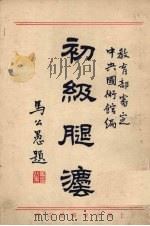 教育部審定
中央國術館編
初級腿灋
馬公愚題